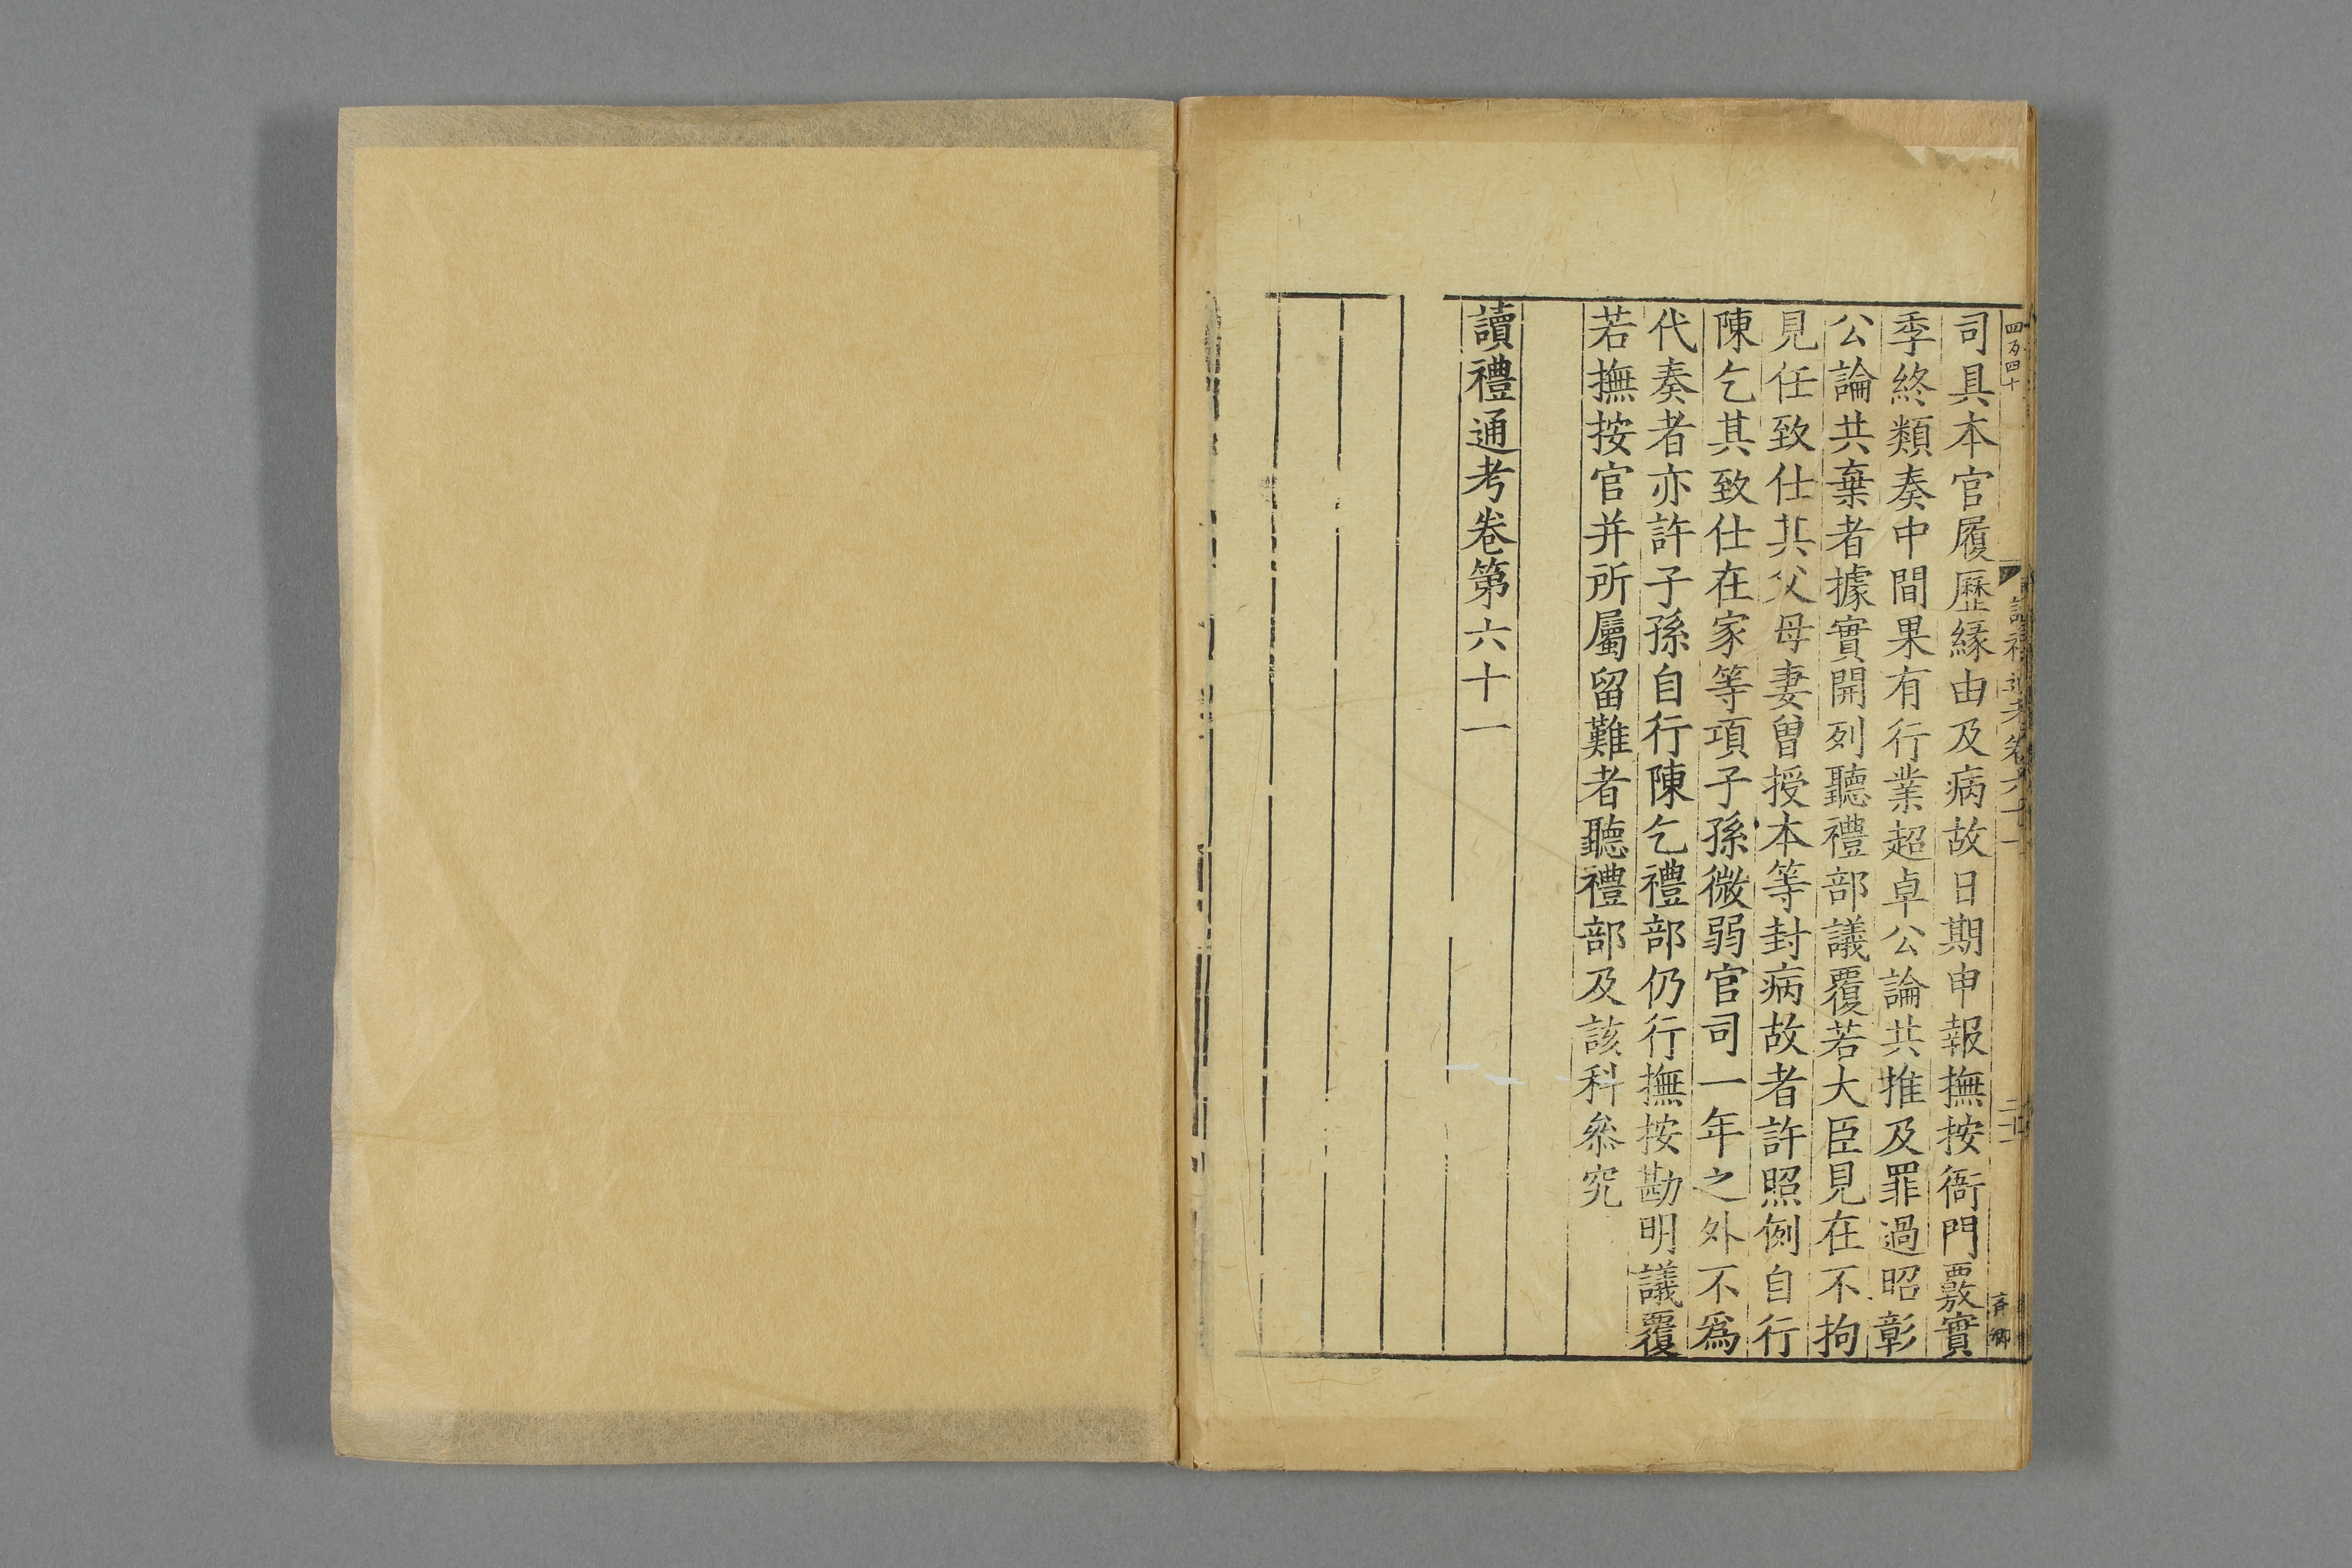 司具本官履歷緣由及病故日期申報撫按衙門覈實
季終類奏中間果有行業超卓公論共推及罪過昭彰
公論共棄者據實開列聽禮部議覆若大臣見在不拘
見任致仕其父母妻曾授本等封病故者許照例自行
陳乞其致仕在家等項子孫微弱官司一年之外不爲
代奏者亦許子孫自行陳乞禮部仍行撫按勘明議覆
若撫按官并所屬留難者聽禮部及該科叅究
讀禮通考卷第六十一